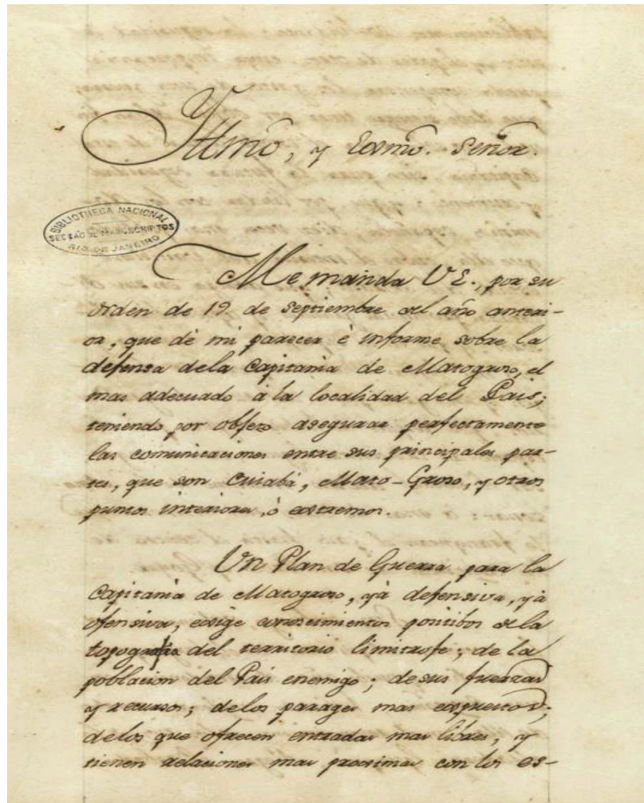 Yllmõ, y Exsmõ. Señor.
BIBLIOTHECA NACIONAL
SECÇÃO DE MANUSCRIPTOS
RIO DE JANEIRO
Me manda V E., por su
orden de 19 de septiembre del año anteri-
or, que dé mi parecer è informe sobre la
defensa dela Capitania de Matogroso, el
mas adecuado à la localidad del Pais;
teniendo por objeto asegurar perfectamente
las comunicaciones entre sus principales par-
tes, que son Cuiabá, Mato-Groso, y otros
puntos interiores, ò extremos.
Un Plan de Guerra para la
Capitania de Matogroso, yà defensiva, yà
ofensiva, exige conoscimientos positibos de la
topografia del territorio limitrofe; de la
poblacion del Pais enemigo; de sus fuerzas
y recursos; delos parages mas expuestos;
delos que ofrecen entradas mas libres, y
tienen relaciones mas proximas con los es-